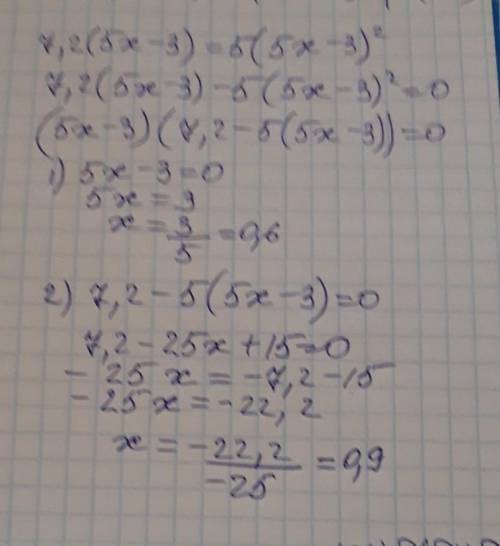 7,2(5x-3)=5(5x-3)²
7,2(5x-3)-5(5x-3)²=0
(5x-3)(7,2-5(5x-3))=0
1) 5x-3=0
5x=3
x=3/5=0,6
2) 7,2-5(5x-3)=0
7,2-25x+15=0
-25x=-7,2-15
-25x=-22,2
x=-22,2/-25=0,9